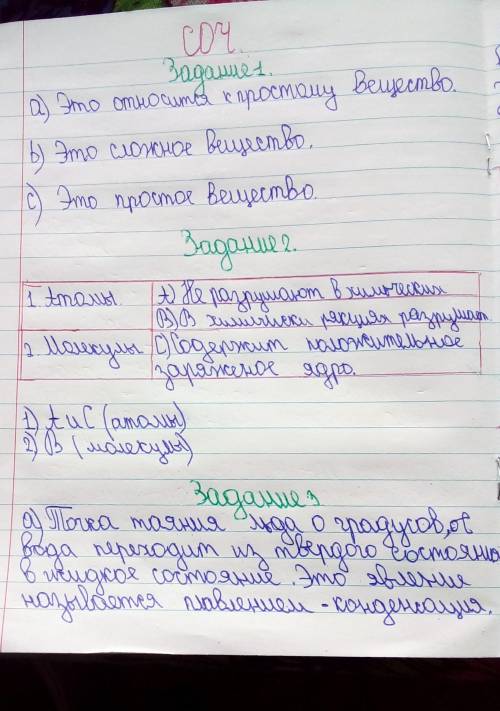 СОЧ.
Задание 1.
a) Это относится к простому веществο.
b) Это сложное вещество.
c) Это простое вещество.
Задание 2.
1. Атомы. A) Не разрушают в химических
B) В химически рякциях разрушает
2 Молекулы C) Содержит положительное
заряженое ядро.
1) A и C (атомы)
2) B (молекулы)
Задание 3
a) Точка таяния льда 0 градусов,
вода переходит из твердого состояния
в жидкое состояние. Это явление
называется плавлением - конденсация.